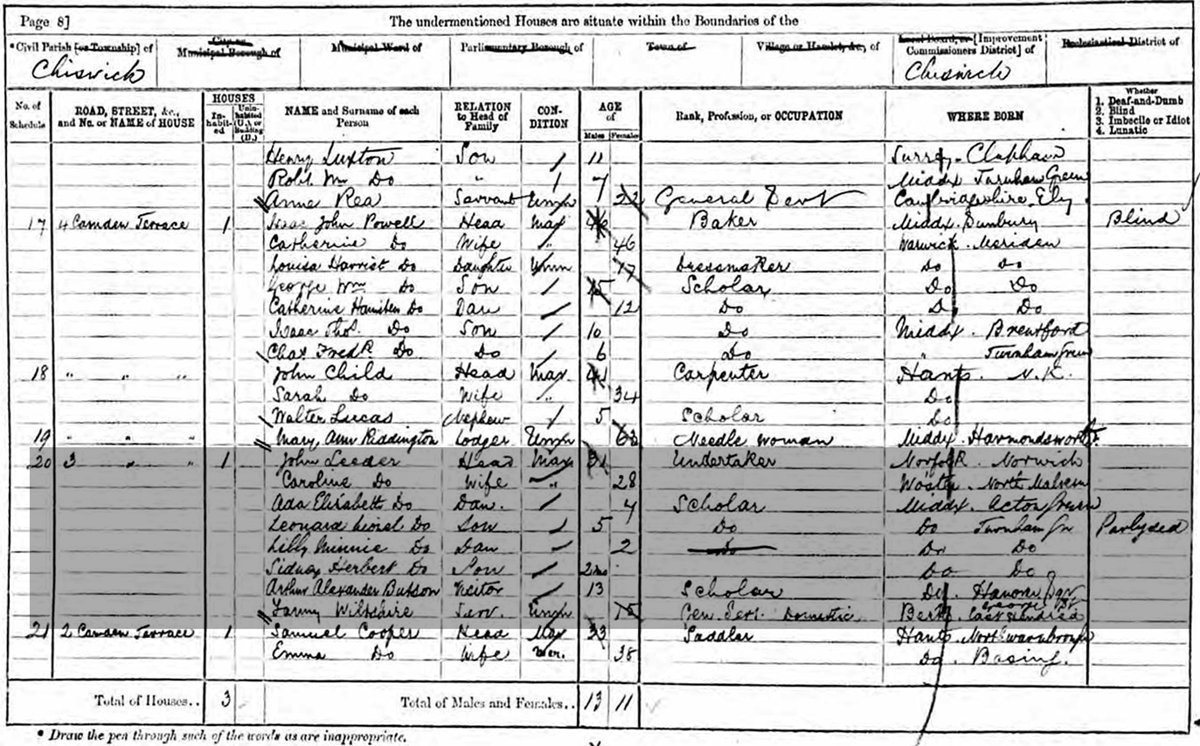 Page 8]
The undermentioned Houses are situate within the Boundaries of the
*Civil Parish [or Township] of
City or Municipal Borough of
Municipal Ward of
Parliamentary Borough of
Town of
Village or Hamlet, &c., of
Local Board, or [Improvement Commissioners District] of
Ecclesiastical District of
Chiswick Chiswick
No. of Schedule
ROAD, STREET, &c., and No. or NAME of HOUSE
HOUSES
In-habit-ed
Unin-habited (U.), or Building (B.)
NAME and Surname of each Person
RELATION to Head of Family
CON-DITION
AGE of
Males Females
Rank, Profession, or OCCUPATION
WHERE BORN
Whether
1. Deaf-and-Dumb
2. Blind
3. Imbecile or Idiot
4. Lunatic
Henry Luxton Son 11 Surrey. Clapham
Robt. Wm Do " 7 Middx Turnham Green
Anne Rea Servant Unm 22 General Servt Cambridgeshire Ely
17 4 Camden Terrace 1 Isaac John Powell Head Mar 46 Baker Middx. Sunbury Blind
Catherine Do Wife " 46 Warwick. Meriden
Louisa Harriet Do Daughter Unm 17 Dressmaker Do Do
George Wm Do Son 15 Scholar Do Do
Catherine Do Dau 12 Do Do Do
Isaac Thos. Do Son 10 Do Middx. Brentford
Chas Fredk Do Do 6 Do " Turnham Green
18 " " " John Child Head Mar 41 Carpenter Hants. N.K.
Sarah Do Wife " 34 Do
Walter Lucas Nephew 5 Scholar Do
19 " " " Mary Ann Riddington Lodger Unm 63 Needle woman Middx. Harmondsworth
20 3 " " 1 John Leeder Head Mar 31 Undertaker Norfolk. Norwich
Caroline Do Wife " 28 Worster. North Malvern
Ada Elizabeth Do Dau. 4 Scholar Middx. Acton Green
Leonard Lionel Do Son 5 Do Do Turnham Gn Parlysed
Lilly Minnie Do Dau 2 Do Do Do
Sidney Herbert Do Son 2mo Do Do
Arthur Alexander Butson Visitor 13 Scholar Do. Hanover Sqr
Fanny Wiltshire Serv. Unm 15 Gen. Serv. Domestic Berk. East Hendred
21 2 Camden Terrace 1 Samuel Cooper Head Mar 33 Saddler Hants. Northwarnbrough
Emma Do Wife 38 Do. Basing.
Total of Houses.. 3
Total of Males and Females.. 13 11
* Draw the pen through such of the words as are inappropriate.